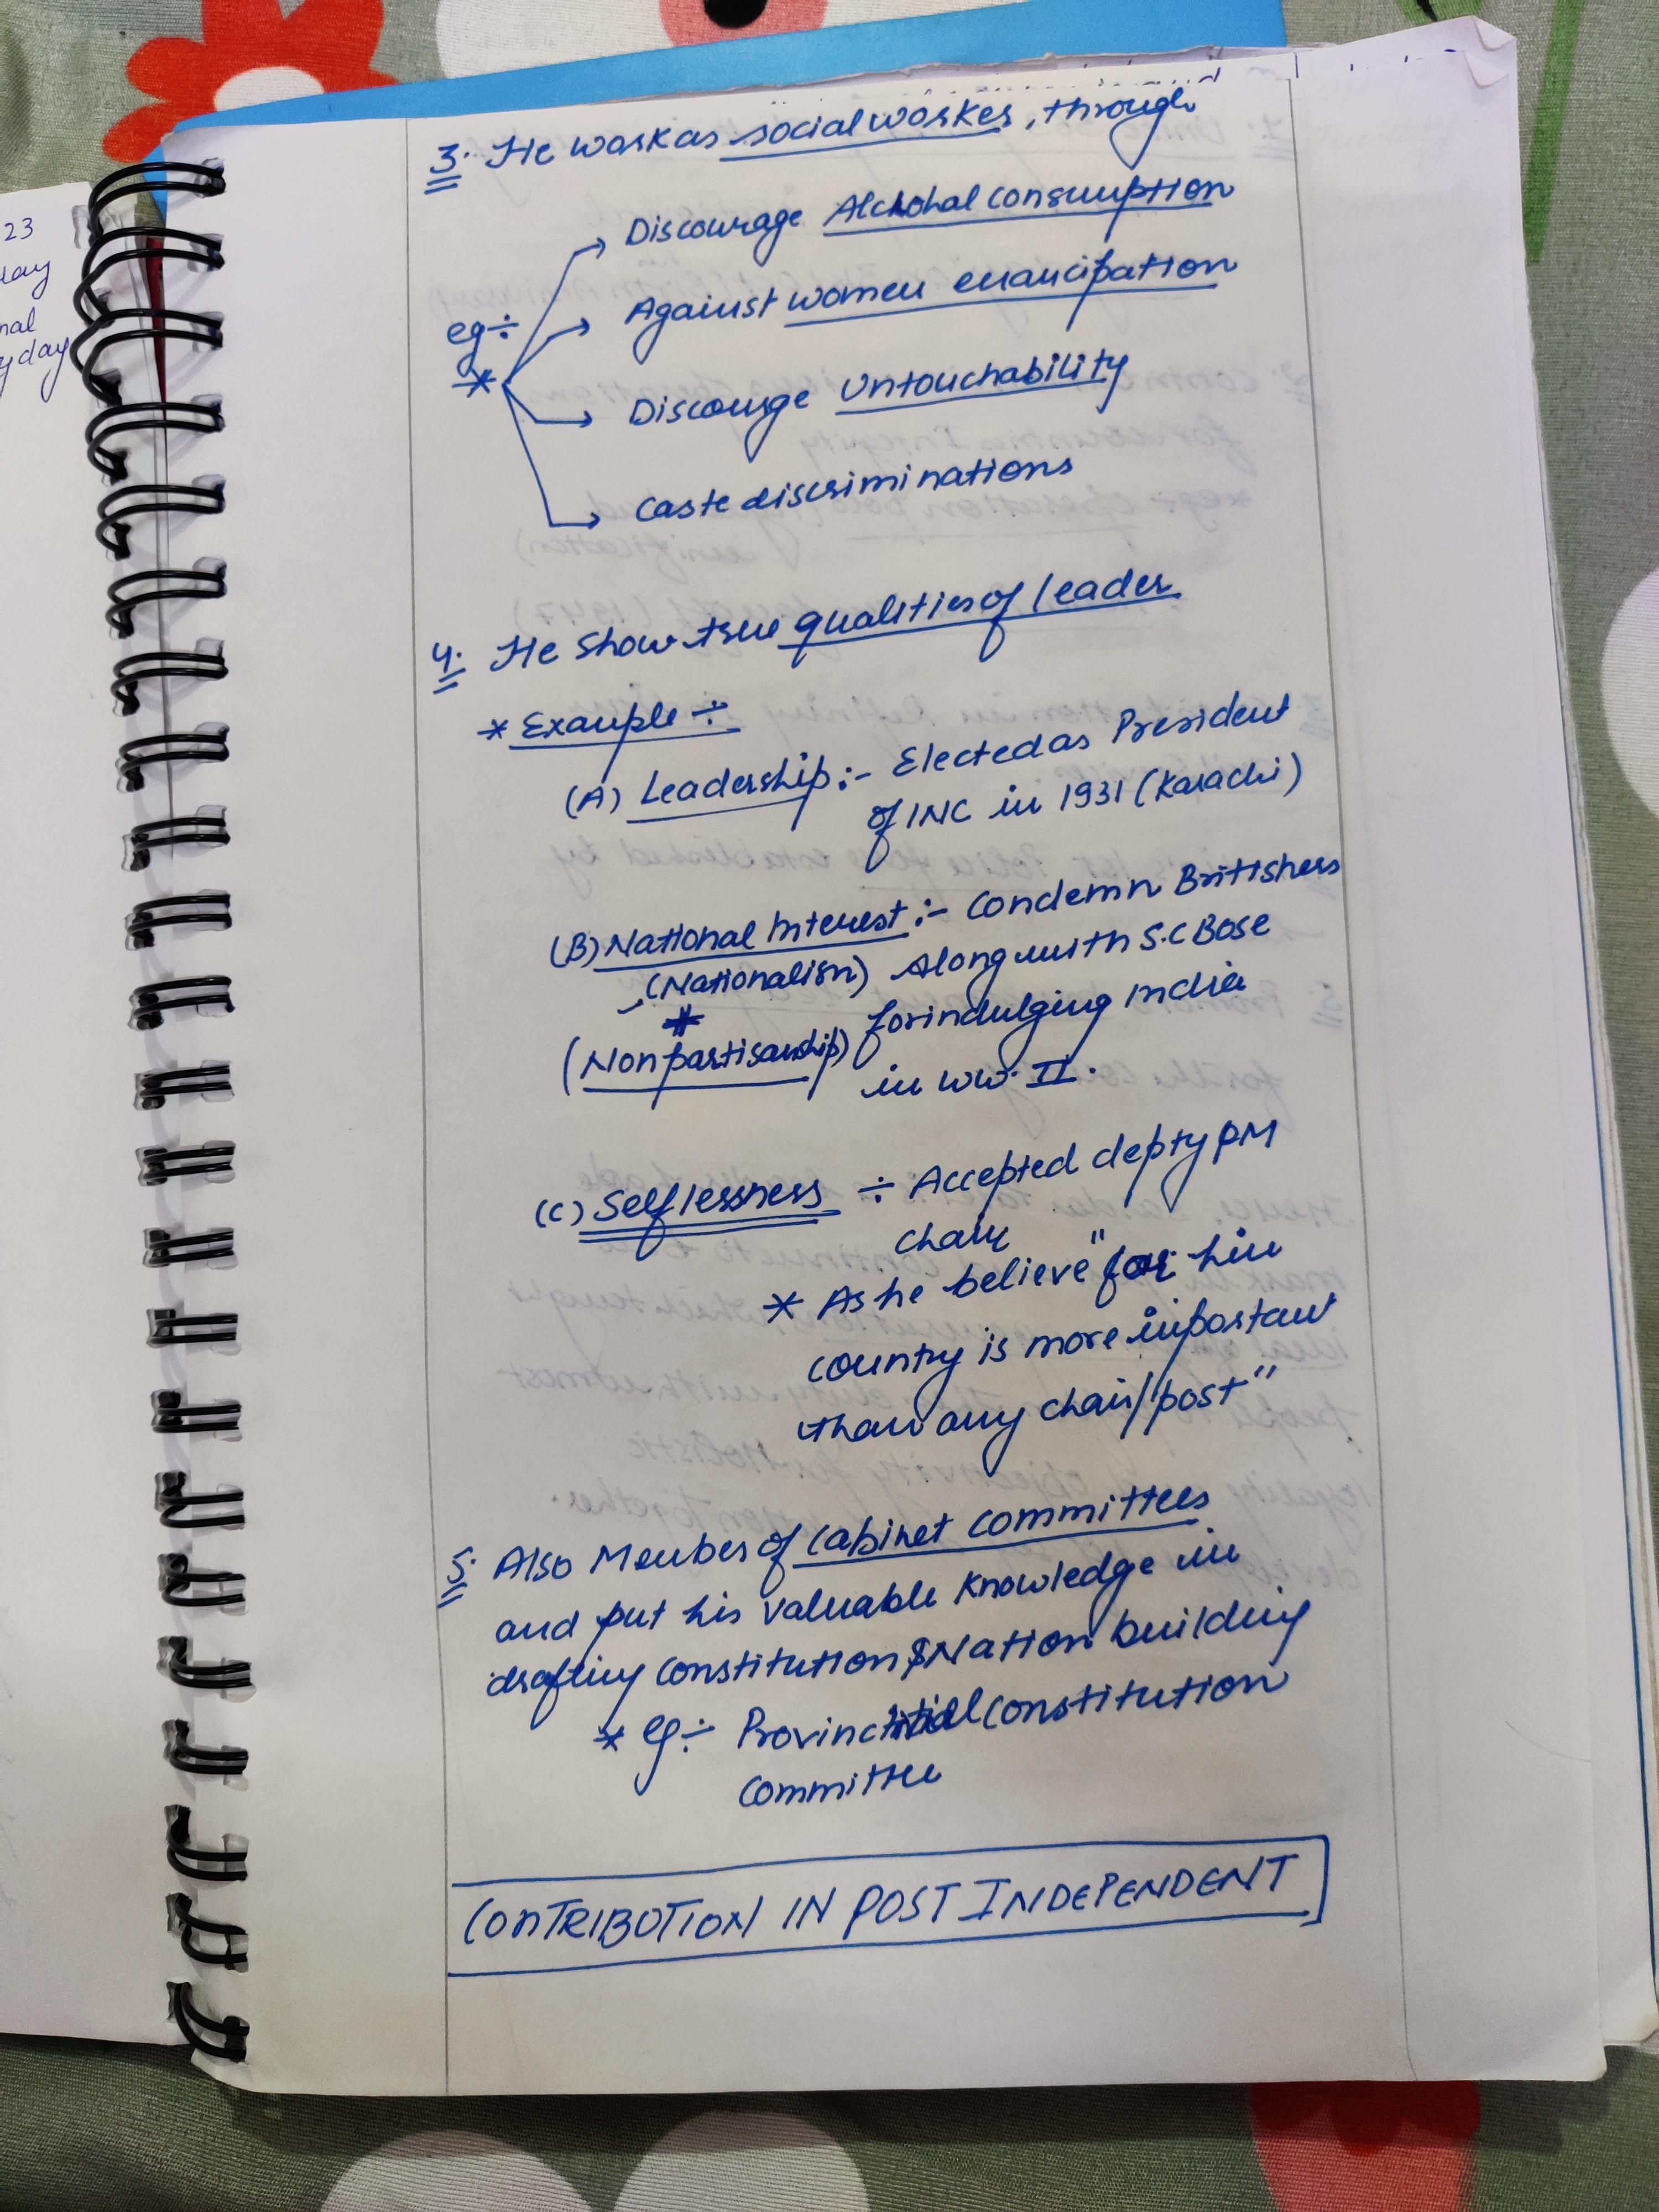 23
day
nal
yday
3. He work as social worker, through
eg÷
*
→ Discourage Alchohal consumption
→ Against women emancipation
→ Discourge Untouchability
→ Caste discriminations
4. He show true qualities of leader
* Example ÷
(A) Leadership :- Elected as President
of INC in 1931 (Karachi)
(B) National Interest :- Condemn Brittishers
(Nationalism) Along with S.C Bose
(Nonpartisanship) for indulging India
in WW. II.
(C) Selflessness ÷ Accepted depty PM
chair
* As he believe "for him
country is more important
than any chair/post"
5. Also Member of Cabinet committees
and put his valuable knowledge in
drafting constitution & Nation building
* eg÷ Provincial constitution
committee
CONTRIBUTION IN POST INDEPENDENT